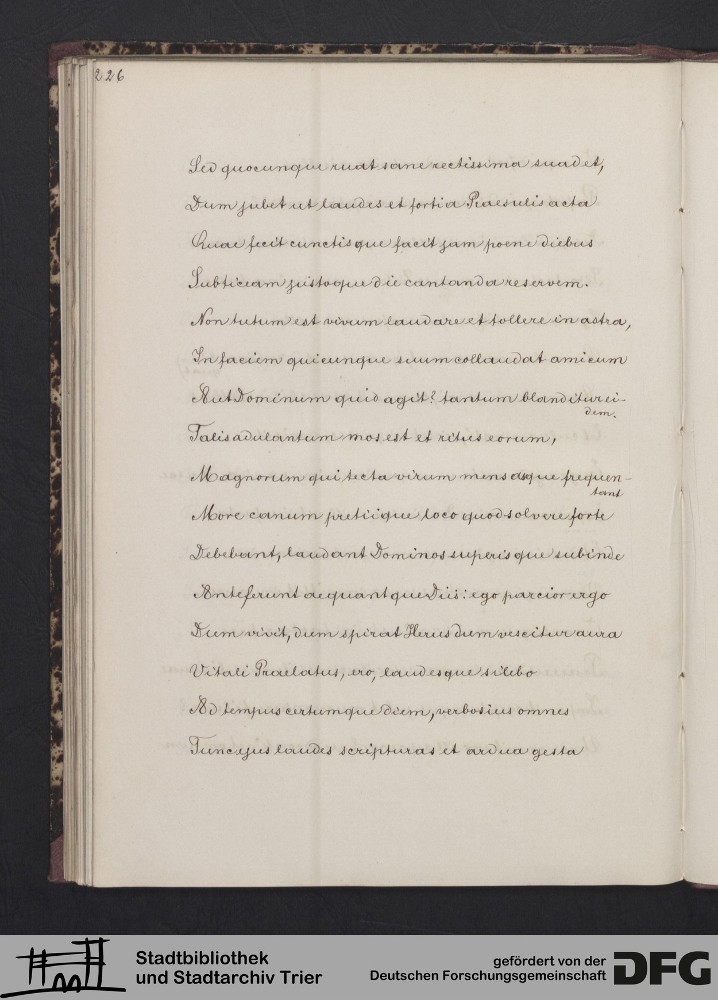 226
Sed quocunque ruat sane rectissima suadet,
Dum jubet ut laudes et fortia Praesulis acta
Quae fecit cunctisque facit jam poene diebus
Subticeam justoque die cantanda reservem.
Non tutum est vivum laudare et tollere in astra,
In faciem quicunque suum collaudat amicum
Aut Dominum quid agit? tantum blanditur ei-
dem.
Talis adulantum mos est et ritus eorum,
Magnorum qui tecta virum mensasque frequen-
tant
More canum pretiique loco quod solvere forte
Debebant, laudant Dominos superisque subinde
Anteferunt aequantque Diis: ego parcior ergo
Dum vivit, dum spirat Herus dum vescitur aura
Vitali Praelatus, ero, laudesque silebo
Ad tempus certumque diem, verbosius omnes
Tunc ejus laudes scripturas et ardua gesta
Stadtbibliothek
und Stadtarchiv Trier
gefördert von der
Deutschen Forschungsgemeinschaft
DFG